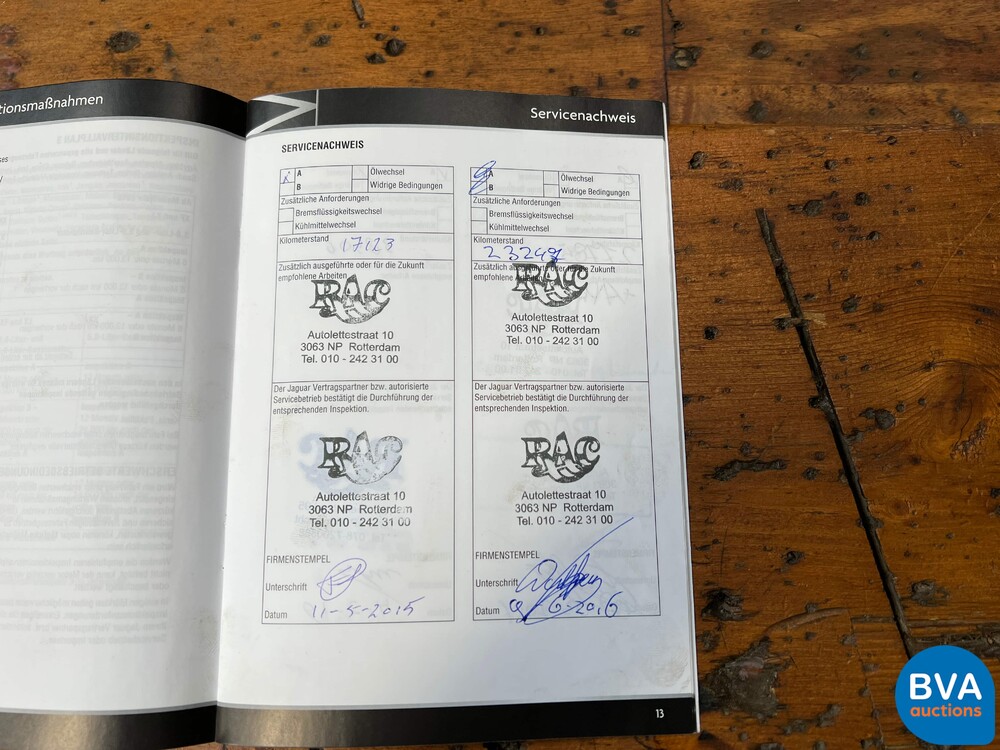 tionsmaßnahmen
Servicenachweis
SERVICENACHWEIS
A
B
Ölwechsel
Widrige Bedingungen
Zusätzliche Anforderungen
Bremsflüssigkeitswechsel
Kühlmittelwechsel
Kilometerstand 17123
Zusätzlich ausgeführte oder für die Zukunft
empfohlene Arbeiten
RAC
Autolettestraat 10
3063 NP Rotterdam
Tel. 010 - 242 31 00
Der Jaguar Vertragspartner bzw. autorisierte
Servicebetrieb bestätigt die Durchführung der
entsprechenden Inspektion.
RAC
Autolettestraat 10
3063 NP Rotterdam
Tel. 010 - 242 31 00
FIRMENSTEMPEL
Unterschrift
Datum 11-5-2015
A
B
Ölwechsel
Widrige Bedingungen
Zusätzliche Anforderungen
Bremsflüssigkeitswechsel
Kühlmittelwechsel
Kilometerstand
Zusätzlich ausgeführte oder für die Zukunft
empfohlene Arbeiten
RAC
Autolettestraat 10
3063 NP Rotterdam
Tel. 010 - 242 31 00
Der Jaguar Vertragspartner bzw. autorisierte
Servicebetrieb bestätigt die Durchführung der
entsprechenden Inspektion.
RAC
Autolettestraat 10
3063 NP Rotterdam
Tel. 010 - 242 31 00
FIRMENSTEMPEL
Unterschrift
Datum
13
BVA
auctions